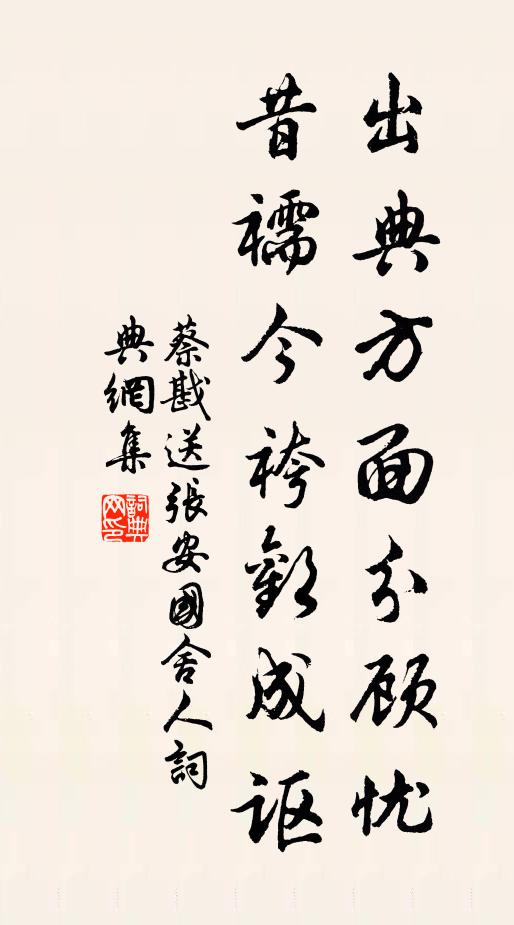 出典方面分顾忧
昔襦今袴歡成讴
蔡戡送張安國舍人詞
典網集
詞典网印